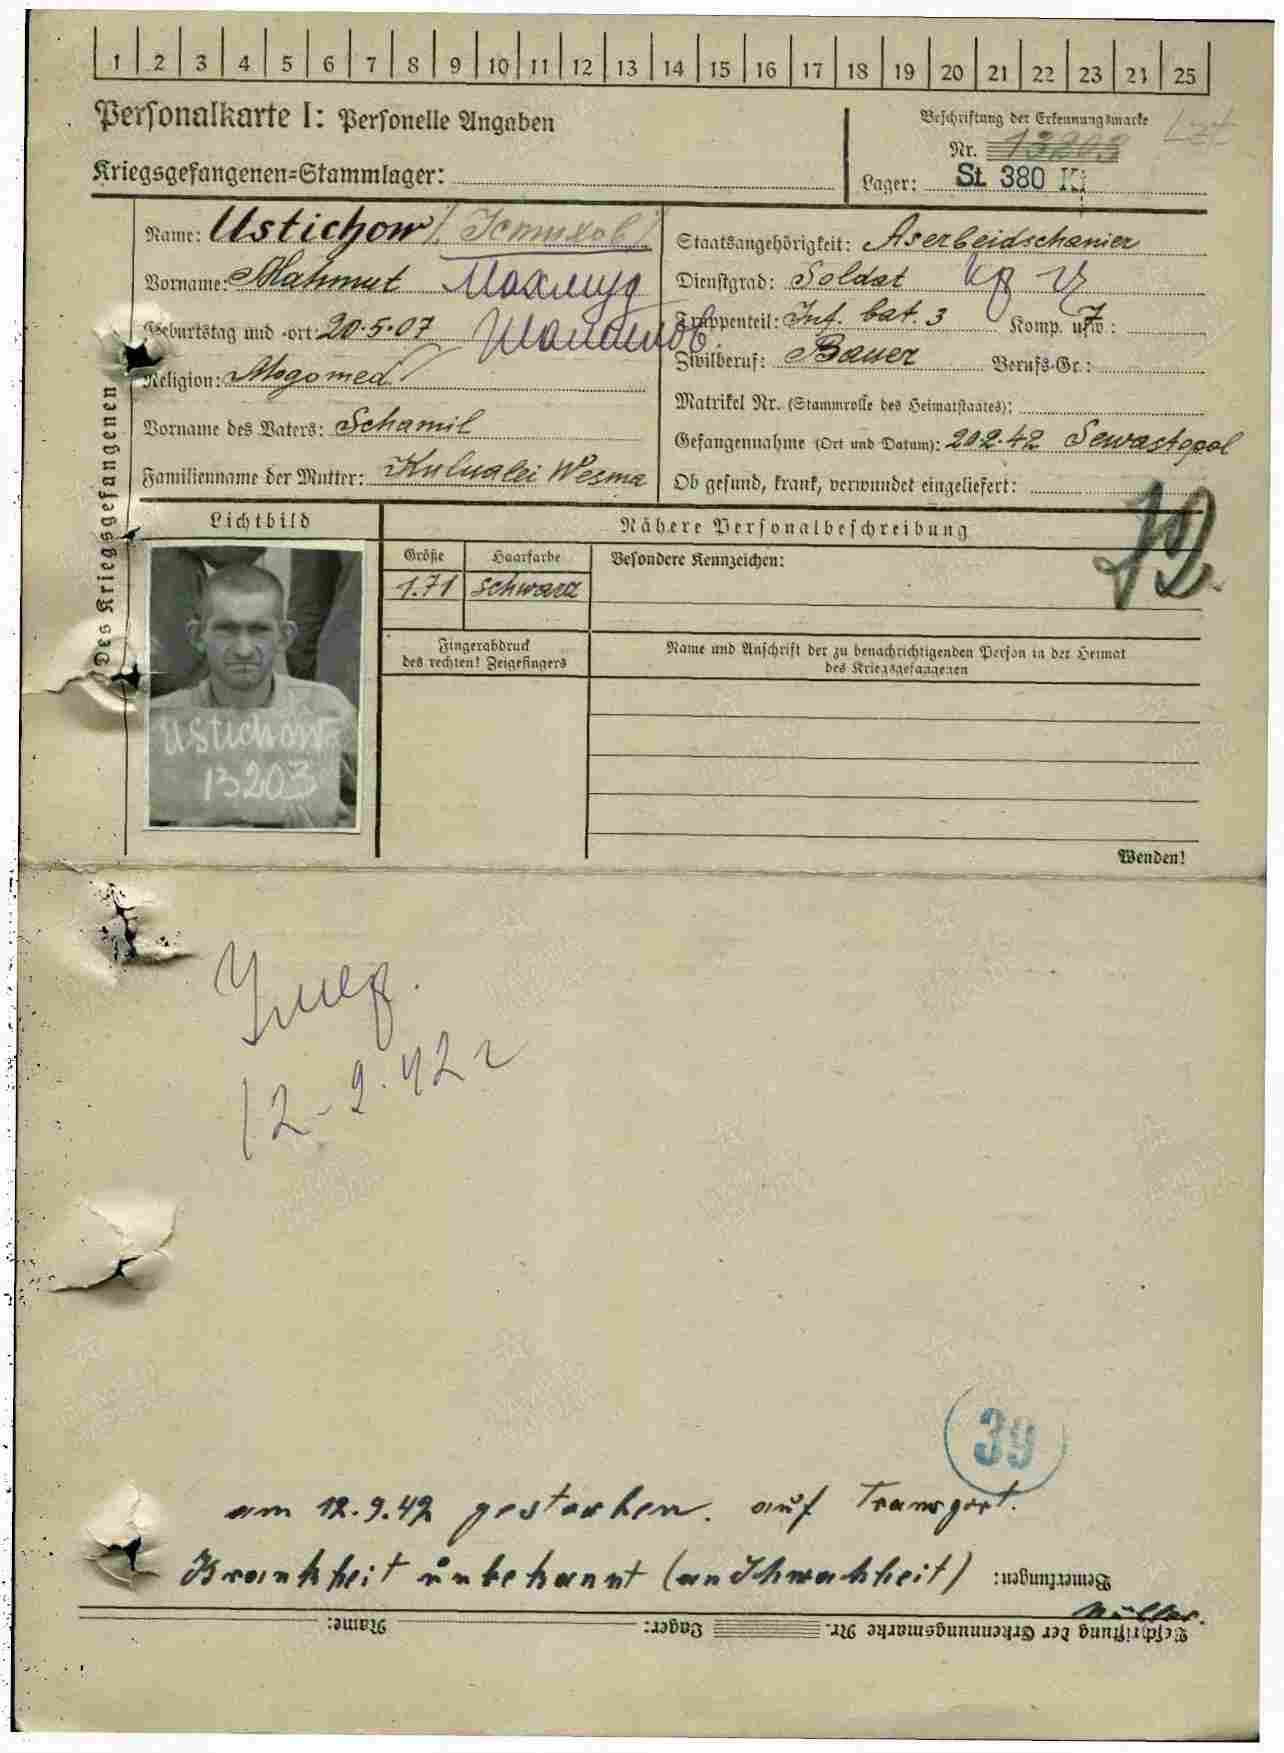 1 2 3 4 5 6 7 8 9 10 11 12 13 14 15 16 17 18 19 20 21 22 23 24 25
Personalkarte I: Personelle Angaben
Kriegsgefangenen=Stammlager:
Beschriftung der Erkennungsmarke
Nr. 13203
Lager: St 380 Ki
Des Kriegsgefangenen
Name: Ustichow
Vorname: Mahmut Махмуд
Geburtstag und -ort: 20.5.07
Religion: Mogomed
Vorname des Vaters: Schamil
Familienname der Mutter: Wesma
Staatsangehörigkeit: Aserbeidschanier
Dienstgrad: Soldat
Truppenteil: Inf. bat. 3 Komp. usw.: 7
Zivilberuf: Bauer Berufs-Gr.:
Matrikel Nr. (Stammrolle des Heimatstaates):
Gefangennahme (Ort und Datum): 20.2.42 Sewastopol
Ob gesund, krank, verwundet eingeliefert:
Lichtbild
Nähere Personalbeschreibung
Größe Haarfarbe Besondere Kennzeichen:
1.71 schwarz
Fingerabdruck
des rechten! Zeigefingers
Name und Anschrift der zu benachrichtigenden Person in der Heimat
des Kriegsgefangenen
Ustichow
13203
Wenden!
Умер.
12-9.42 г
39
am 12.9.42 gestorben. auf Transport.
Krankheit unbekannt (an Schwachheit)
Bemerkungen:
Müller.
Beschriftung der Erkennungsmarke Nr. Lager: Name: